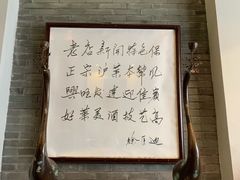 老店新开特色保
正宗沪菜本帮风
兴旺发达迎佳宾
好菜美酒技艺高